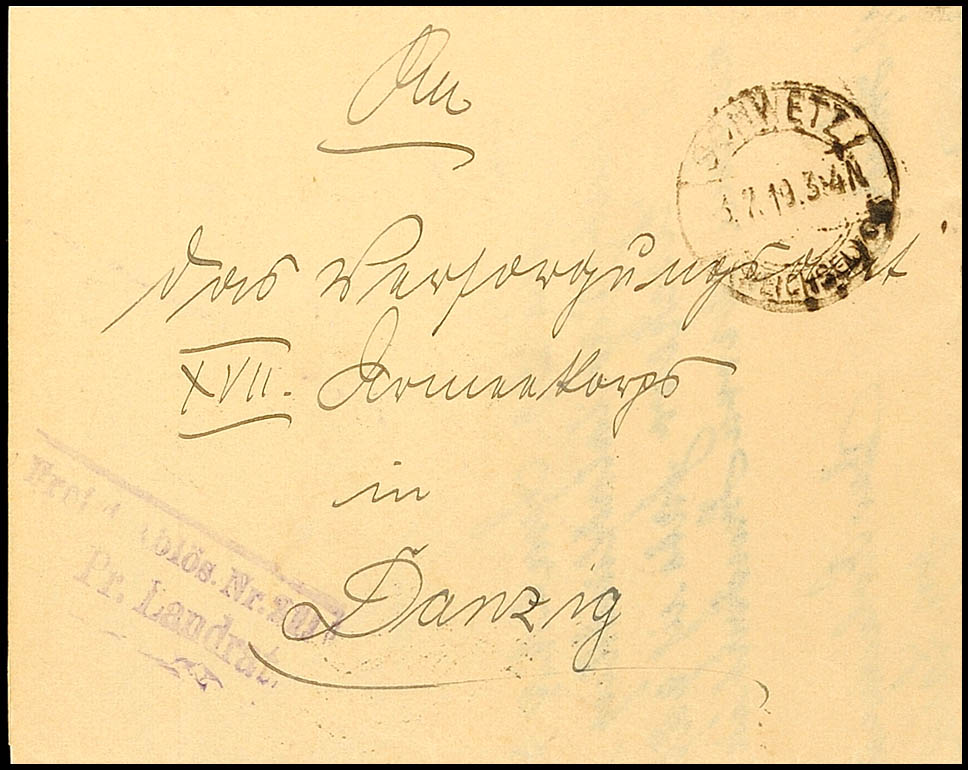 An
das Versorgungsamt
XVII. Armeekorps
in
Danzig
SCHWETZ
3.7.19.3-4N
(WEICHSEL)
Frei Ablös. Nr.
Pr. Landrat.